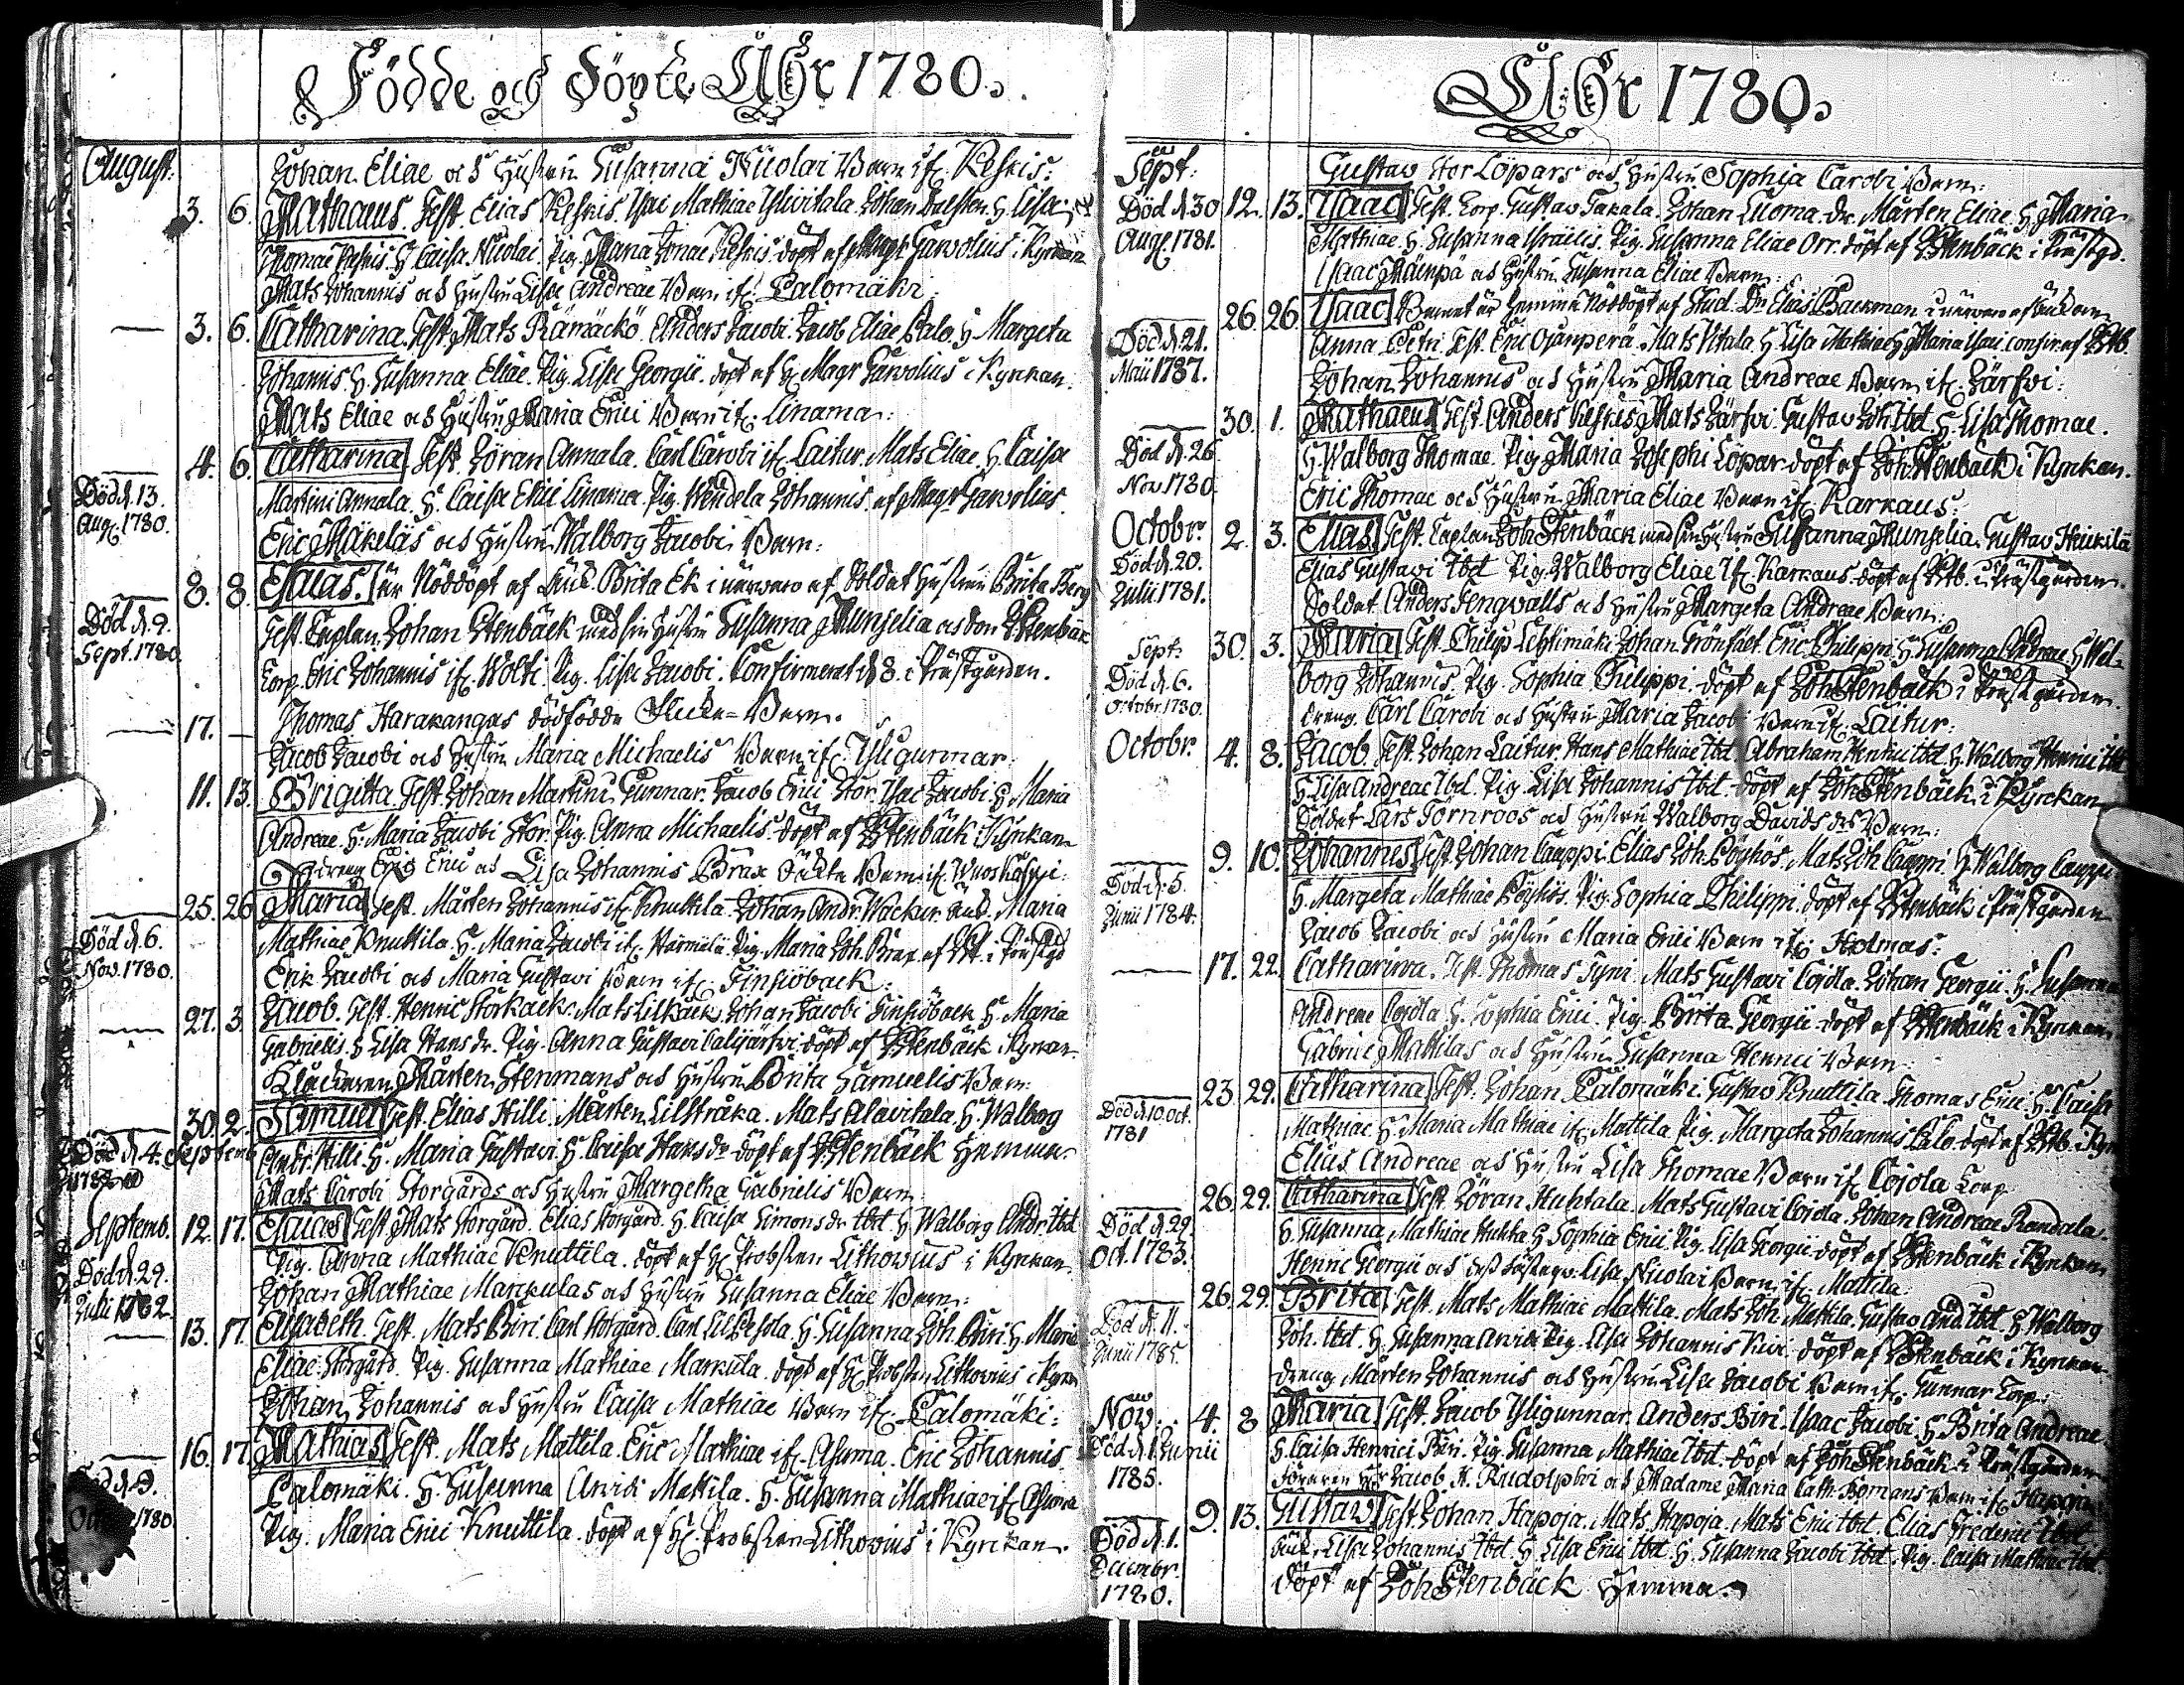 Födde och Döpte Åhr 1780.
August:
Johan Eliae och Hustru Susanna Nicolai Barn if. Keskis:
3. 6. Mathaeus. Test. Elias Keskis. Isac Mathiae Ylivitala. Johan Dalsten. H. Lisa
Thomae Keskis. H. Caisa Nicolai. Pig. Maria Jonae Keskis. döpt af Magr Garvolius i Kyrkan
Mats Johannis och Hustru Lisa Andreae Barn if. Palomäki:
3. 6. Catharina. Test. Mats Rämäckö. Anders Jacobi. Jacob Eliae Palo. H. Margeta
Johannis. H. Susanna Eliae. Pig. Lisa Georgii. döpt af H. Magr Garvolius i Kyrkan.
Mats Eliae och Hustru Maria Erici Barn if. Linama:
4. 6. Catharina Test. Göran Annala. Carl Caroli if. Laitur. Mats Eliae. H. Caisa
Död d. 13. Aug. 1780.
Martini Annala. H. Caisa Erici Linama. Pig. Wendela Johannis. af Magr Garvolius.
Eric Mäkeläs och Hustru Walborg Jacobi Barn:
8. 8. Esaias. är Nöddöpt af Enk. Brita Ek i närvaro af Soldat Hustrun Brita Berg
Död d. 9. Sept. 1780
Test. Caplan Johan Stenbäck med sin Hustru Susanna Munselia
Corp. Eric Johannis if. Wolti. Pig. Lisa Jacobi. Confirmerat d. 8. i Prästgården.
17. Thomas Harakangas dödfödde Flicke-Barn.
Jacob Jacobi och Hustru Maria Michaelis Barn if. Yligunnar:
11. 13. Brigitta. Test. Johan Martini Gunnar. Jacob Erici Stor. Isac Jacobi. H. Maria
Andreae. H. Maria Jacobi Stor. Pig. Anna Michaelis. döpt af Stenbäck i Kyrkan
Drengen Eric Erici och Lisa Johannis Brax Barn if.
25. 26 Maria Test. Mårten Johannis if. Knuttila. Johan Andr. Wacker. Enk. Maria
Död d. 6. Nov. 1780.
Mathiae Knuttila. H. Maria Jacobi if. Härmälä. Pig. Maria Joh. Brax. af Stb. i Prästgd
Erik Jacobi och Maria Gustavi Barn if. Finsiöback:
27. 3. Jacob. Test. Henric Storkack. Mats Lilkack. Johan Jacobi Finsiöback. H. Maria
Gabrielis. H. Lisa Hans dr. Pig. Anna Gustavi Calijärfvi. döpt af Stenbäck i Kyrkan.
Klockaren Mårten Stenmans och Hustru Brita Samuelis Barn:
30. 2. Samuel Test. Elias Hilli. Mårten Lilstråka. Mats Alavitala. H. Walborg
Död d. 4. Septemb
Andr. Hilli. H. Maria Gustavi. H. Caisa Hans dr. döpt af Stenbäck Hemma.
Mats Caroli Storgårds och Hustru Margetha Gabrielis Barn
Septemb. 12. 17. Esaias Test. Mats Storgård. Elias Storgård. H. Caisa Simons dr. Ibd. H. Walborg Andr. Ibd
Död d. 29. Julii 1782.
Pig. Anna Mathiae Knuttila. döpt af H. Probsten Lithovius i Kyrkan.
Johan Mathiae Markulas och Hustru Susanna Eliae Barn:
13. 17. Elisabeth. Test. Mats Biri. Carl Storgård. Carl Lilpesola. H. Susanna Joh. Biri. H. Maria
Eliae Storgård. Pig. Susanna Mathiae Markula. döpt af H. Probsten Lithovius i Kyrk
Johan Johannis och Hustru Caisa Mathiae Barn if. Palomäki:
16. 17 Mathias Test. Mats Mattila. Eric Mathiae if. Asuma. Eric Johannis
Död d. 9. 1780
Palomäki. H. Susanna Anviti Mattila. H. Susanna Mathiae if. Asuma
Pig. Maria Erici Knuttila. döpt af H. Probsten Lithovius i Kyrkan.
Åhr 1780.
Sept:
Gustav Stor Löpars och Hustru Sophia Caroli Barn:
12. 13. Isaac Test. Corp. Gustav Takala. Johan Luoma. Dr. Mårten Eliae. H. Maria
Död d. 30 Aug. 1781.
Mathiae. H. Susanna Israelis. Pig. Susanna Eliae Orr. döpt af Stenbäck i Prästgd.
Isaac Mäenpä och Hustru Susanna Eliae Barn:
26. 26. Isaac Barnet är Hemma Nöddöpt af Stud. Dn Elias Backman i närvaro af
Död d. 21. Maii 1787.
Anna Petri. Test. Eric Ojanperä. Mats Vitala. H. Lisa Mathiae. H. Maria Isaci. confir. af Stb.
Johan Johannis och Hustru Maria Andreae Barn if. Järfvi:
30. 1. Mathaeus Test. Anders Keskis. Mats Järfvi. Gustav Joh. Ibd. H. Lisa Thomae.
Död d. 26 Nov 1780.
H. Walborg Thomae. Pig. Maria Josephi Löpar. döpt af Joh. Stenbäck i Kyrkan.
Eric Thomae och Hustru Maria Eliae Barn if. Karkaus:
Octobr. 2. 3. Elias Test. Caplan Joh. Stenbäck med sin Hustru Susanna Munselia. Gustav Heikilä
Död d. 20. Julii 1781.
Elias Gustavi Ibd. Pig. Walborg Eliae if. Karkaus. döpt af Stb. i Prästgården.
Soldat Anders Sengvalls och Hustru Margeta Andreae Barn:
Sept: 30. 3. Maria Test. Philip Lehtimäki. Johan Grönfält. Eric Philippi. H. Susanna Andreae. H. Wal-
Död d. 6. Octobr. 1780.
borg Johannis. Pig. Sophia Philippi. döpt af Joh Stenbäck i Prästgården.
Dreng. Carl Caroli och Hustru Maria Jacobi Barn if. Laitur:
Octobr. 4. 8. Jacob. Test. Johan Laitur. Hans Mathiae Ibd. Abraham Henrici Ibd. H. Walborg Henrici Ibd
H. Lisa Andreae Ibd. Pig. Lisa Johannis Ibd. döpt af Joh Stenbäck i Kyrckan
Soldat Lars Törnroos och Hustru Walborg Davids dr Barn:
9. 10. Johannes Test. Johan Cauppi. Elias Joh. Pöyhös. Mats Joh. Cauppi. H. Walborg Cauppi
Död d. 5. Junii 1784.
H. Margeta Mathiae Pöyhös. Pig. Sophia Philippi. döpt af Stenbäck i Prästgården
Jacob Jacobi och Hustru Maria Erici Barn if. Holmas:
17. 22. Catharina. Test. Thomas Tyni. Mats Gustavi Cojola. Johan Georgii. H. Susanna
Andreae Cojola. H. Sophia Erici. Pig. Brita Georgii. döpt af Stenbäck i Kyrkan
Gabriel Mattilas och Hustru Susanna Henrici Barn:
23. 29. Catharina Test. Johan Palomäki. Gustav Knuttila. Thomas Erici. H. Caisa
Död d. 10. Oct. 1781
Mathiae. H. Maria Mathiae if. Mattila. Pig. Margeta Johannis Palo. döpt af Stb. i Kyr
Elias Andreae och Hustru Lisa Thomae Barn if. Cojola Torp
26. 29. Catharina Test. Göran Huhtala. Mats Gustavi Cojola. Johan Andreae Randala.
Död d. 29. Oct. 1783.
H. Susanna Mathiae Huhta. H. Sophia Erici. Pig. Lisa Georgii. döpt af Stenbäck i Kyrkan
Henric Georgii och Lisa Nicolai Barn if. Mattila.
26. 29. Brita Test. Mats Mathiae Mattila. Mats Joh. Mattila. Gustav And. Ibd. H. Walborg
Död d. 11. Junii 1785.
Joh. Ibd. H. Susanna Anviti. Pig. Lisa Johannis Kivi. döpt af Stenbäck i Kyrkan
Dreng Mårten Johannis och Hustru Lisa Jacobi Barn if. Gunnar Torp:
Nov. 4. 8 Maria Test. Jacob Yligunnar. Anders Biri. Isaac Jacobi. H. Brita Andreae
Död d. 1 Junii 1785.
H. Caisa Henrici Biri. Pig. Susanna Mathiae Ibd. döpt af Joh Stenbäck i Prästgården
Hr Jacob A. Rudolphi och Madame Maria Cath. Bomans Barn if. Hapoja
9. 13. Gustav Test. Johan Hapoja. Mats Hapoja. Mats Erici Ibd. Elias Frederici Ibd
Död d. 1. Decembr. 1780.
Enk. Lisa Johannis Ibd. H. Lisa Erici Ibd. H. Susanna Jacobi Ibd. Pig. Caisa Mathiae Ibd.
döpt af Joh Stenbäck Hemma.